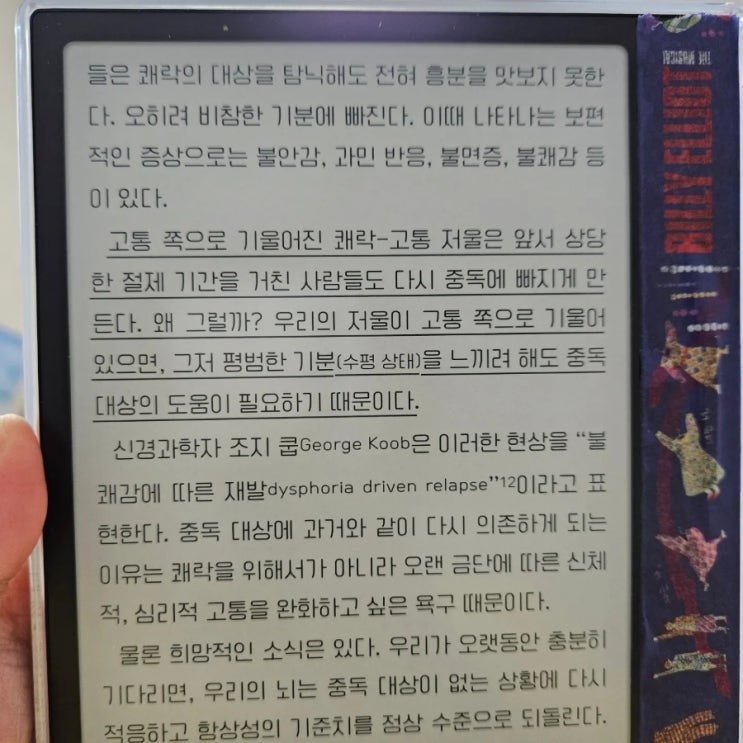 들은 쾌락의 대상을 탐닉해도 전혀 흥분을 맛보지 못한
다. 오히려 비참한 기분에 빠진다. 이때 나타나는 보편
적인 증상으로는 불안감, 과민 반응, 불면증, 불쾌감 등
이 있다.
고통 쪽으로 기울어진 쾌락-고통 저울은 앞서 상당
한 절제 기간을 거친 사람들도 다시 중독에 빠지게 만
든다. 왜 그럴까? 우리의 저울이 고통 쪽으로 기울어
있으면, 그저 평범한 기분(수평 상태)을 느끼려 해도 중독
대상의 도움이 필요하기 때문이다.
신경과학자 조지 쿱George Koob은 이러한 현상을 “불
쾌감에 따른 재발dysphoria driven relapse”12이라고 표
현한다. 중독 대상에 과거와 같이 다시 의존하게 되는
이유는 쾌락을 위해서가 아니라 오랜 금단에 따른 신체
적, 심리적 고통을 완화하고 싶은 욕구 때문이다.
물론 희망적인 소식은 있다. 우리가 오랫동안 충분히
기다리면, 우리의 뇌는 중독 대상이 없는 상황에 다시
적응하고 항상성의 기준치를 정상 수준으로 되돌린다.
BILLY ELLIOT
THE MUSICAL